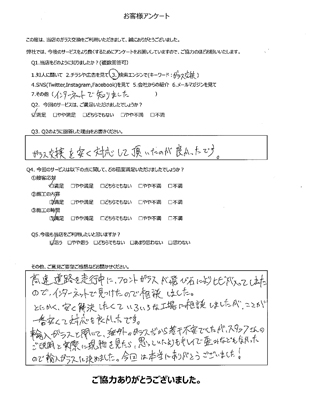 お客様アンケート
この度は、当店のガラス交換をご利用いただきまして、誠にありがとうございました。
弊社では、今後のサービスをより良くするためにアンケートをお願いしていますので、ご協力のほどお願いいたします。
Q1.当店をどのようにお知りになりましたか?(複数回答可)
1.知人に聞いて 2.チラシや広告を見て 3.検索エンジンで(キーワード:ガラス交換)
4.SNS(Twitter,Instagram,Facebook)を見て 5.会社からの紹介 6.メールマガジンを見て
7.その他(インターネットで知りました)
Q2.今回のサービスは、ご満足いただけましたでしょうか?
☑満足 □やや満足 □どちらでもない □やや不満 □不満
Q3.Q2のように回答した理由をお書きください。
ガラス交換を安く対応して頂いたのが良かったです。
Q4.今回のサービスは以下の点に関して、どの程度満足いただけましたでしょうか?
①接客応対
☑満足 □やや満足 □どちらでもない □やや不満 □不満
②施工の内容
☑満足 □やや満足 □どちらでもない □やや不満 □不満
③施工の時間
☑満足 □やや満足 □どちらでもない □やや不満 □不満
Q5.今後も当店をご利用したいと思いますか?
☑思う □やや思う □どちらでもない □あまり思わない □思わない
その他、ご意見ご要望などをお聞かせください。
高速道路を走行中に、フロントガラスが飛び石によりヒビが入ってしまった
ので、インターネットで見つけたので相談しました。
とにかく、安く解決したくていろいろな工場に相談しましたが、ここが
一番安くて対応も良かったです。
輸入ガラスと聞いて、海外のガラスだから若干不安でしたが、スタッフさんの
ご説明と実際に現物を見たら、思っていたよりもキレイで歪みなどもなかった
ので輸入ガラスに決めました。今回は本当にありがとうございました!
ご協力ありがとうございました。